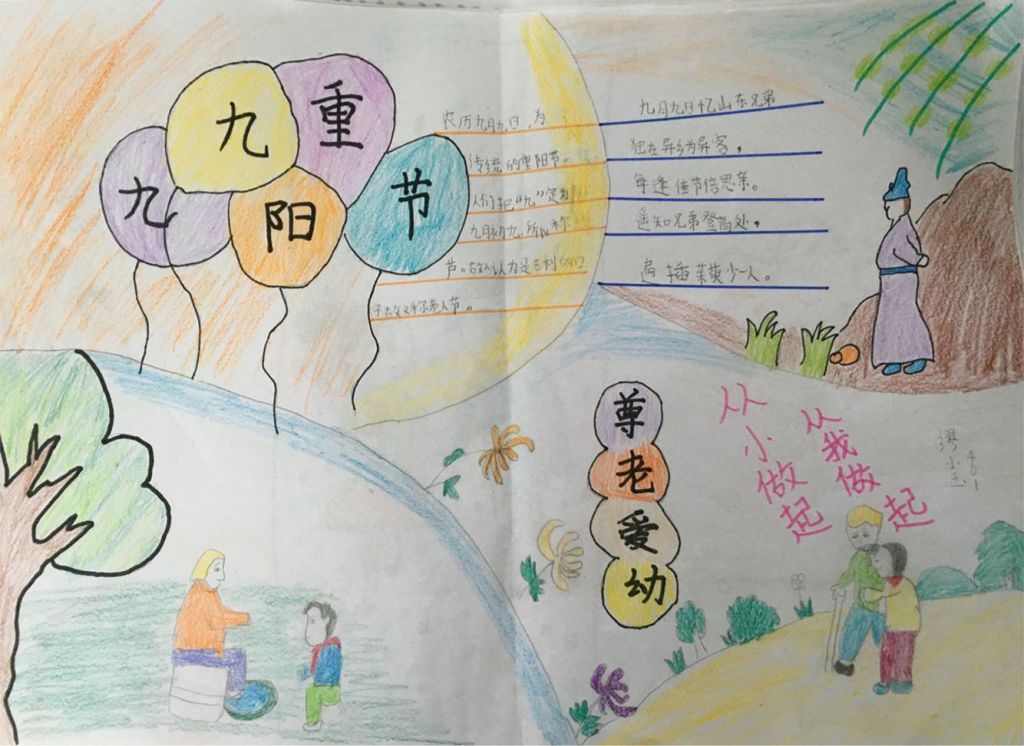 九九重阳节
农历九月九日,为
传统的重阳节。
人们把“九”定为
九月初九,所以称
节。故人认为是吉利的日
子九又称老人节。
九月九日忆山东兄弟
独在异乡为异客,
每逢佳节倍思亲。
遥知兄弟登高处,
遍插茱萸少一人。
尊老爱幼
从小做起
从我做起
缪小